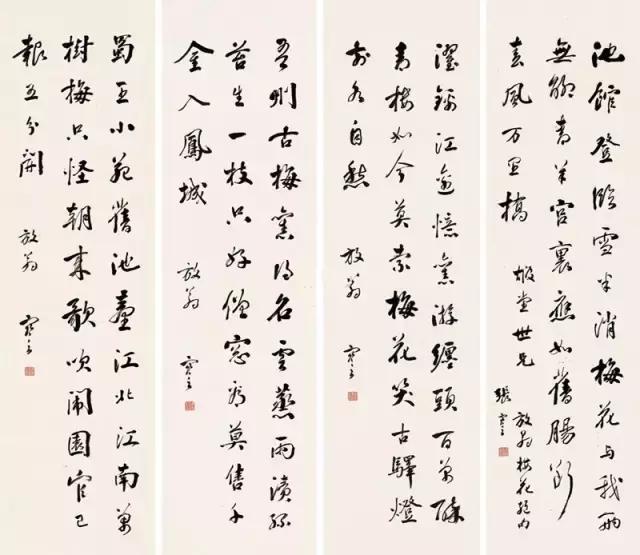 池館登臨雪半消梅花与我兩
無聊青羊宮裏應如舊腸斷
春風万里橋
堂世兄
放翁梅花絕句
張
濯錦江邊憶舊游纏頭百萬醉
青樓如今莫索梅花笑古驛燈
前各自愁
放翁
吾州古梅舊得名雲蒸雨漬綠
苔生一枝只好僧窓看莫售千
金入鳳城
放翁
蜀王小苑舊池臺江北江南萬
樹梅只怪朝來歌吹鬧園官已
報五分開
放翁